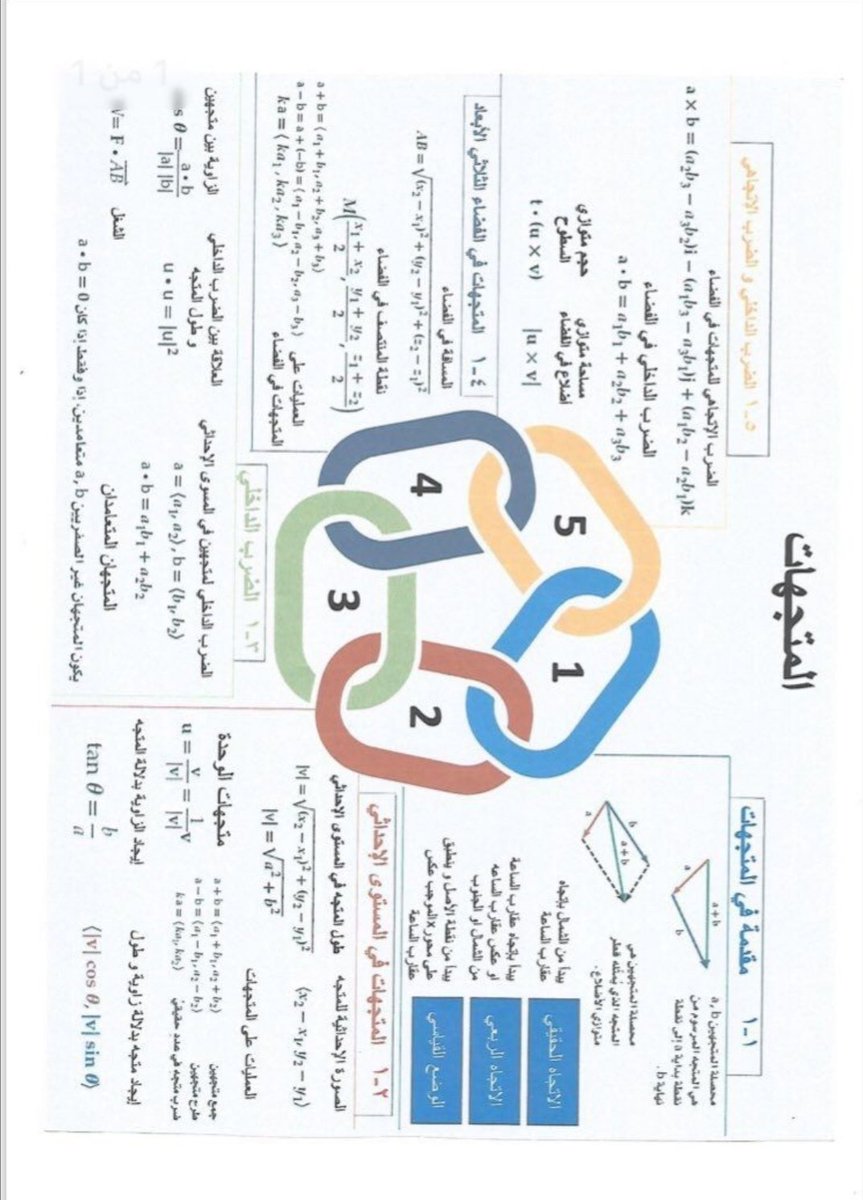 1 من 1
المتجهات
1
2
3
4
5
١-١ مقدمة في المتجهات
a
b
a+b
محصلة المتجهين a, b
هي المتجه المرسوم من
نقطة بداية a إلى نقطة
نهاية b.
a
b
a+b
محصلة المتجهين هي
المتجه الذي يمثله قطر
متوازي الأضلاع.
الاتجاه الحقيقي
يبدا من الشمال بإتجاه
عقارب الساعة
الاتجاه الربعي
يبدا بإتجاه عقارب الساعة
او عكس عقارب الساعه
من الشمال او الجنوب
الوضع القياسي
يبدا من نقطة الأصل و ينطبق
على محور x الموجب عكس
عقارب الساعة
١-٢ المتجهات في المستوى الإحداثي
الصورة الإحداثية للمتجه
(x₂ − x₁, y₂ − y₁)
طول المتجه في المستوى الإحداثي
|v| = √(x₂ − x₁)² + (y₂ − y₁)²
|v| = √a² + b²
العمليات على المتجهات
جمع متجهين a + b = ⟨a₁ + b₁, a₂ + b₂⟩
طرح متجهين a − b = ⟨a₁ − b₁, a₂ − b₂⟩
ضرب متجه في عدد حقيقي ka = ⟨ka₁, ka₂⟩
متجهات الوحدة
u = v/|v| = 1/|v| v
إيجاد متجه بدلالة زاوية و طول
⟨|v| cos θ, |v| sin θ⟩
إيجاد الزاوية بدلالة المتجه
tan θ = b/a
١-٣ الضرب الداخلي
الضرب الداخلي لمتجهين في المسوى الإحداثي
a = ⟨a₁, a₂⟩, b = ⟨b₁, b₂⟩
a • b = a₁b₁ + a₂b₂
المتجهان المتعامدان
يكون المتجهان غير الصفريين a, b متعامدين، إذا وفقط إذا كان a • b = 0
العلاقة بين الضرب الداخلي
و طول المتجه
u • u = |u|²
الزاوية بين متجهين
s θ = a • b/|a| |b|
الشغل
= F • AB
١-٤ المتجهات في الفضاء الثلاثي الأبعاد
المسافة في الفضاء
AB = √(x₂ − x₁)² + (y₂ − y₁)² + (z₂ − z₁)²
نقطة المنتصف في الفضاء
M(x₁ + x₂/2, y₁ + y₂/2, z₁ + z₂/2)
العمليات على
المتجهات في الفضاء
a + b = ⟨a₁ + b₁, a₂ + b₂, a₃ + b₃⟩
a − b = a + (−b) = ⟨a₁ − b₁, a₂ − b₂, a₃ − b₃⟩
ka = ⟨ka₁, ka₂, ka₃⟩
١-٥ الضرب الداخلي و الضرب الاتجاهي
الضرب الاتجاهي للمتجهات في الفضاء
a × b = (a₂b₃ − a₃b₂)i − (a₁b₃ − a₃b₁)j + (a₁b₂ − a₂b₁)k
الضرب الداخلي في الفضاء
a • b = a₁b₁ + a₂b₂ + a₃b₃
مساحة متوازي
أضلاع في الفضاء
|u × v|
حجم متوازي
السطوح
t • (u × v)